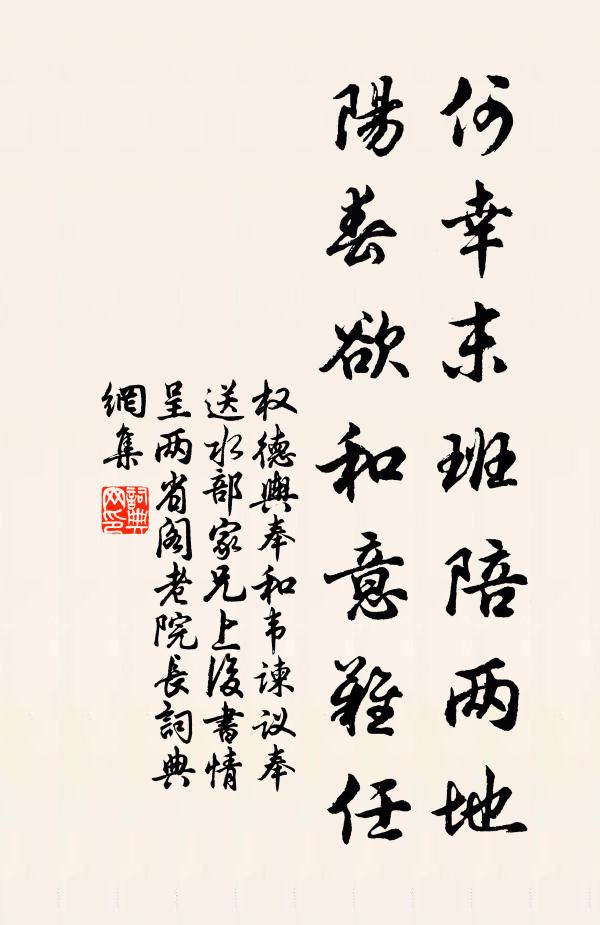 何幸末班陪两地
陽春欲和意難任
权德輿奉和韦諫议奉
送水部家兄上後書情
呈两省阁老院長詞典
網集
詞典网印